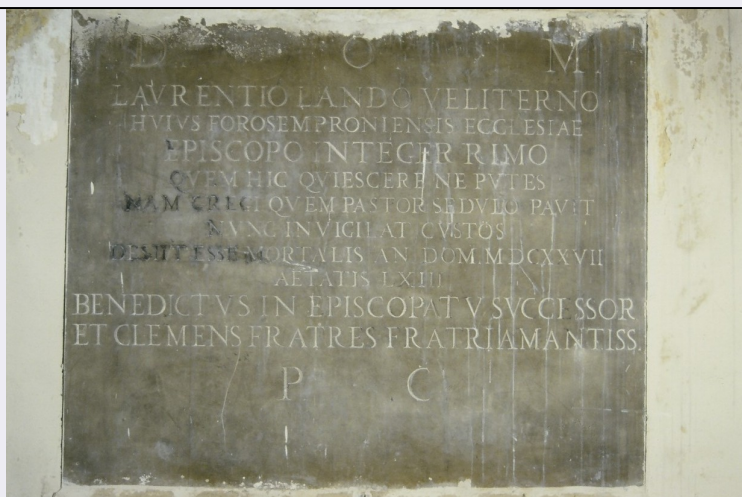 D O M
LAVRENTIO LANDO VELITERNO
HVIVS FOROSEMPRONIENSIS ECCLESIAE
EPISCOPO INTEGERRIMO
QVEM HIC QVIESCERE NE PVTES
NAM GREGI QVEM PASTOR SEDVLO PAVIT
NVNC INVIGILAT CVSTOS
DESIIT ESSE MORTALIS AN DOM. MDCXXVII
AETATIS LXIII
BENEDICTVS IN EPISCOPATV SVCCESSOR
ET CLEMENS FRATRES FRATRI AMANTISS.
P C